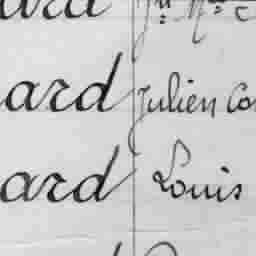 ard
ard Julien Co
ard Louis